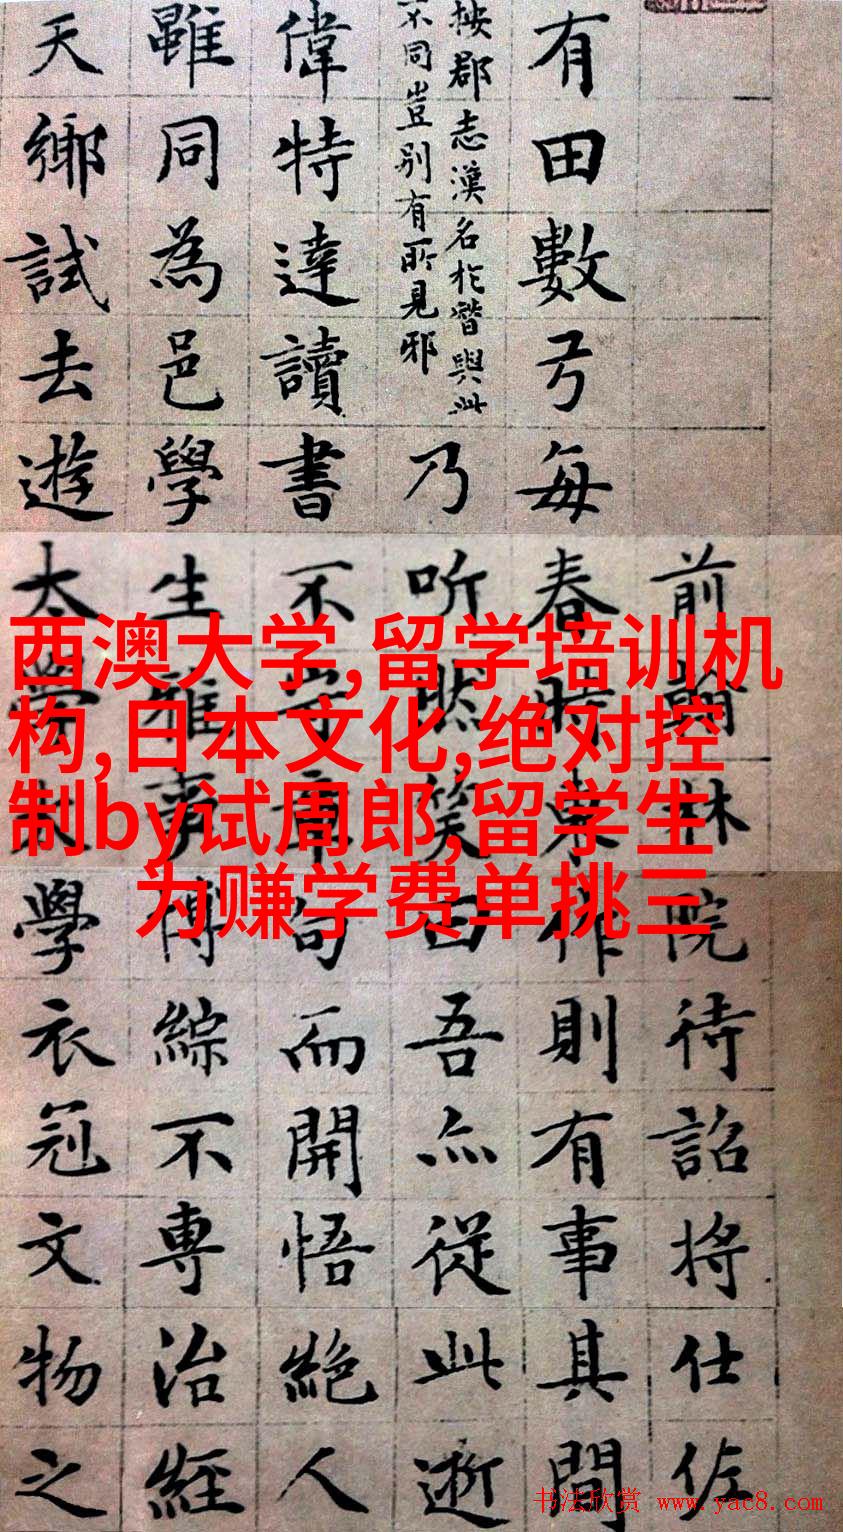 前翰林院待詔將仕佐
有田數弓每春時東作則有事其間
按郡志漢名於與此
不同豈别有所見邪
乃听然笑曰吾亦從此逝
偉特達讀書不守章句而開悟絶人
雖同為邑學生雅事博綜不専治經
天鄉試去遊太學太學衣冠文物之
西澳大学,留学培训机
构,日本文化,绝对控
制by试周郎,留学生
为赚学费单挑三
书法欣赏 www.yac8.com